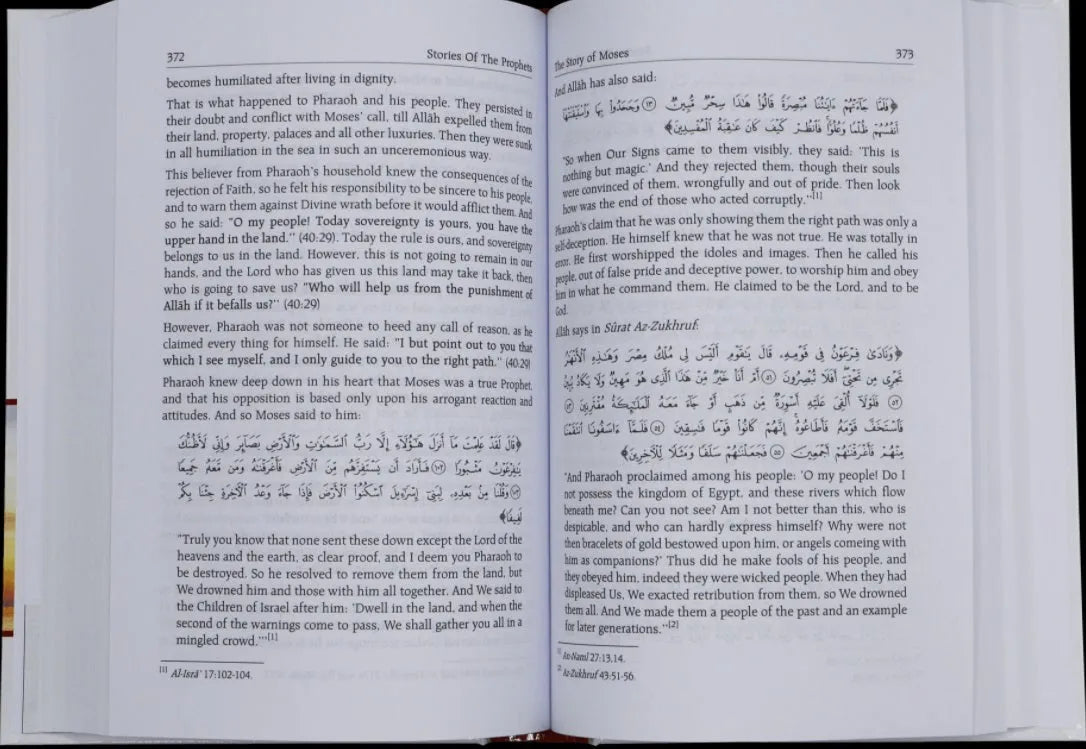 372
Stories Of The Prophets
becomes humiliated after living in dignity.
That is what happened to Pharaoh and his people. They persisted in
their doubt and conflict with Moses' call, till Allâh expelled them from
their land, property, palaces and all other luxuries. Then they were sunk
in all humiliation in the sea in such an unceremonious way.
This believer from Pharaoh's household knew the consequences of the
rejection of Faith, so he felt his responsibility to be sincere to his people,
and to warn them against Divine wrath before it would afflict them. And
so he said: "O my people! Today sovereignty is yours, you have the
upper hand in the land." (40:29). Today the rule is ours, and sovereignty
belongs to us in the land. However, this is not going to remain in our
hands, and the Lord who has given us this land may take it back, then
who is going to save us? "Who will help us from the punishment of
Allâh if it befalls us?" (40:29)
However, Pharaoh was not someone to heed any call of reason, as he
claimed every thing for himself. He said: "I but point out to you that
which I see myself, and I only guide to you to the right path." (40:29)
Pharaoh knew deep down in his heart that Moses was a true Prophet,
and that his opposition is based only upon his arrogant reaction and
attitudes. And so Moses said to him:
﴿قَالَ لَقَدْ عَلِمْتَ مَآ أَنزَلَ هَٰٓؤُلَآءِ إِلَّا رَبُّ ٱلسَّمَٰوَٰتِ وَٱلْأَرْضِ بَصَآئِرَ وَإِنِّى لَأَظُنُّكَ
يَٰفِرْعَوْنُ مَثْبُورًا ﴿١٠٢﴾ فَأَرَادَ أَن يَسْتَفِزَّهُم مِّنَ ٱلْأَرْضِ فَأَغْرَقْنَٰهُ وَمَن مَّعَهُۥ جَمِيعًا
﴿١٠٣﴾ وَقُلْنَا مِنۢ بَعْدِهِۦ لِبَنِىٓ إِسْرَٰٓءِيلَ ٱسْكُنُوا۟ ٱلْأَرْضَ فَإِذَا جَآءَ وَعْدُ ٱلْءَاخِرَةِ جِئْنَا بِكُمْ
لَفِيفًا﴾
"Truly you know that none sent these down except the Lord of the
heavens and the earth, as clear proof, and I deem you Pharaoh to
be destroyed. So he resolved to remove them from the land, but
We drowned him and those with him all together. And We said to
the Children of Israel after him: 'Dwell in the land, and when the
second of the warnings come to pass, We shall gather you all in a
mingled crowd.'"[1]
[1] Al-Isrâ' 17:102-104.
The Story of Moses
373
And Allâh has also said:
﴿فَلَمَّا جَآءَتْهُمْ ءَايَٰتُنَا مُبْصِرَةً قَالُوا۟ هَٰذَا سِحْرٌ مُّبِينٌ ﴿١٣﴾ وَجَحَدُوا۟ بِهَا وَٱسْتَيْقَنَتْهَآ
أَنفُسُهُمْ ظُلْمًا وَعُلُوًّا فَٱنظُرْ كَيْفَ كَانَ عَٰقِبَةُ ٱلْمُفْسِدِينَ﴾
"So when Our Signs came to them visibly, they said: 'This is
nothing but magic.' And they rejected them, though their souls
were convinced of them, wrongfully and out of pride. Then look
how was the end of those who acted corruptly."[1]
Pharaoh's claim that he was only showing them the right path was only a
self-deception. He himself knew that he was not true. He was totally in
error. He first worshipped the idoles and images. Then he called his
people, out of false pride and deceptive power, to worship him and obey
him in what he command them. He claimed to be the Lord, and to be
God.
Allâh says in Sûrat Az-Zukhruf:
﴿وَنَادَىٰ فِرْعَوْنُ فِى قَوْمِهِۦ قَالَ يَٰقَوْمِ أَلَيْسَ لِى مُلْكُ مِصْرَ وَهَٰذِهِ ٱلْأَنْهَٰرُ
تَجْرِى مِن تَحْتِىٓ أَفَلَا تُبْصِرُونَ ﴿٥١﴾ أَمْ أَنَا۠ خَيْرٌ مِّنْ هَٰذَا ٱلَّذِى هُوَ مَهِينٌ وَلَا يَكَادُ يُبِينُ
﴿٥٢﴾ فَلَوْلَآ أُلْقِىَ عَلَيْهِ أَسْوِرَةٌ مِّن ذَهَبٍ أَوْ جَآءَ مَعَهُ ٱلْمَلَٰٓئِكَةُ مُقْتَرِنِينَ ﴿٥٣﴾
فَٱسْتَخَفَّ قَوْمَهُۥ فَأَطَاعُوهُ إِنَّهُمْ كَانُوا۟ قَوْمًا فَٰسِقِينَ ﴿٥٤﴾ فَلَمَّآ ءَاسَفُونَا ٱنتَقَمْنَا
مِنْهُمْ فَأَغْرَقْنَٰهُمْ أَجْمَعِينَ ﴿٥٥﴾ فَجَعَلْنَٰهُمْ سَلَفًا وَمَثَلًا لِّلْءَاخِرِينَ﴾
"And Pharaoh proclaimed among his people: 'O my people! Do I
not possess the kingdom of Egypt, and these rivers which flow
beneath me? Can you not see? Am I not better than this, who is
despicable, and who can hardly express himself? Why were not
then bracelets of gold bestowed upon him, or angels comeing with
him as companions?' Thus did he make fools of his people, and
they obeyed him, indeed they were wicked people. When they had
displeased Us, We exacted retribution from them, so We drowned
them all. And We made them a people of the past and an example
for later generations."[2]
1 An-Naml 27:13,14.
2 Az-Zukhruf 43:51-56.